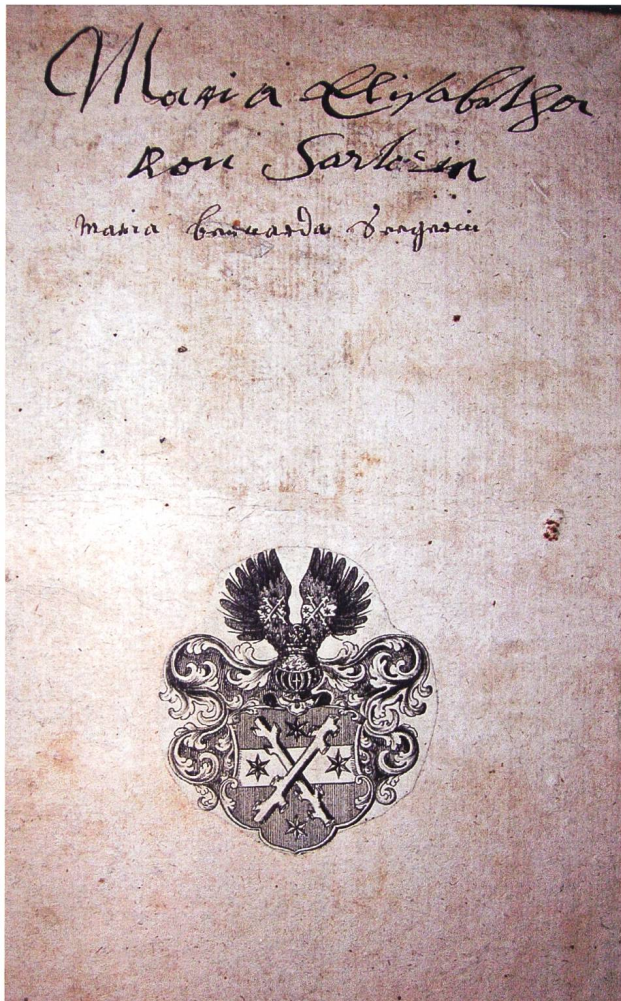 Maria Elisabetha
von Sartorin
Maria bernarda Seegerin